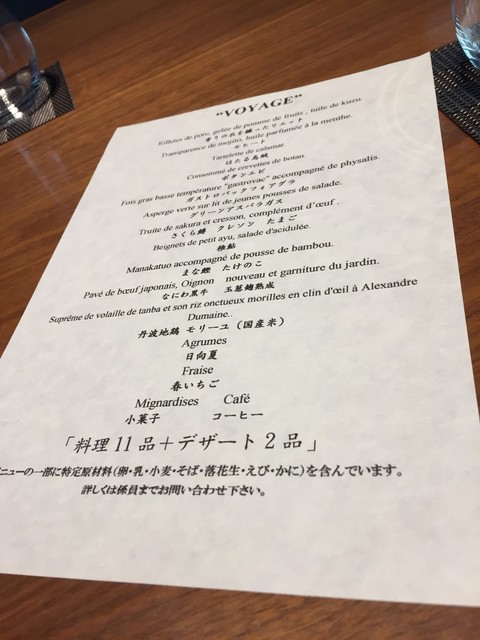 "VOYAGE"
Rilletes de porc, gelée de pomme de fruits, tuile de kuzu.
香りの衣を纏ったリエット
Transparence de mojito, huile parfumée à la menthe.
モヒート
Tartelette de calamar.
ほたる烏賊
Consommé de crevettes de botan.
ボタンエビ
Fois gras basse température "gastrovac" accompagné de physalis.
ガストロバックフォアグラ
Asperge verte sur lit de jeunes pousses de salade.
グリーンアスパラガス
Truite de sakura et cresson, complément d'œuf.
さくら鱒 クレソン たまご
Beignets de petit ayu, salade d'acidulée.
稚鮎
Manakatuo accompagné de pousse de bambou.
まな鰹 たけのこ
Pavé de bœuf japonais, Oignon nouveau et garniture du jardin.
なにわ黒牛 玉葱麹熟成
Suprême de volaille de tanba et son riz onctueux morilles en clin d'œil à Alexandre
Dumaine..
丹波地鶏 モリーユ（国産米）
Agrumes
日向夏
Fraise
春いちご
Mignardises Café
小菓子 コーヒー
「料理11品＋デザート2品」
ニューの一部に特定原材料（卵・乳・小麦・そば・落花生・えび・かに）を含んでいます。
詳しくは係員までお問い合わせ下さい。